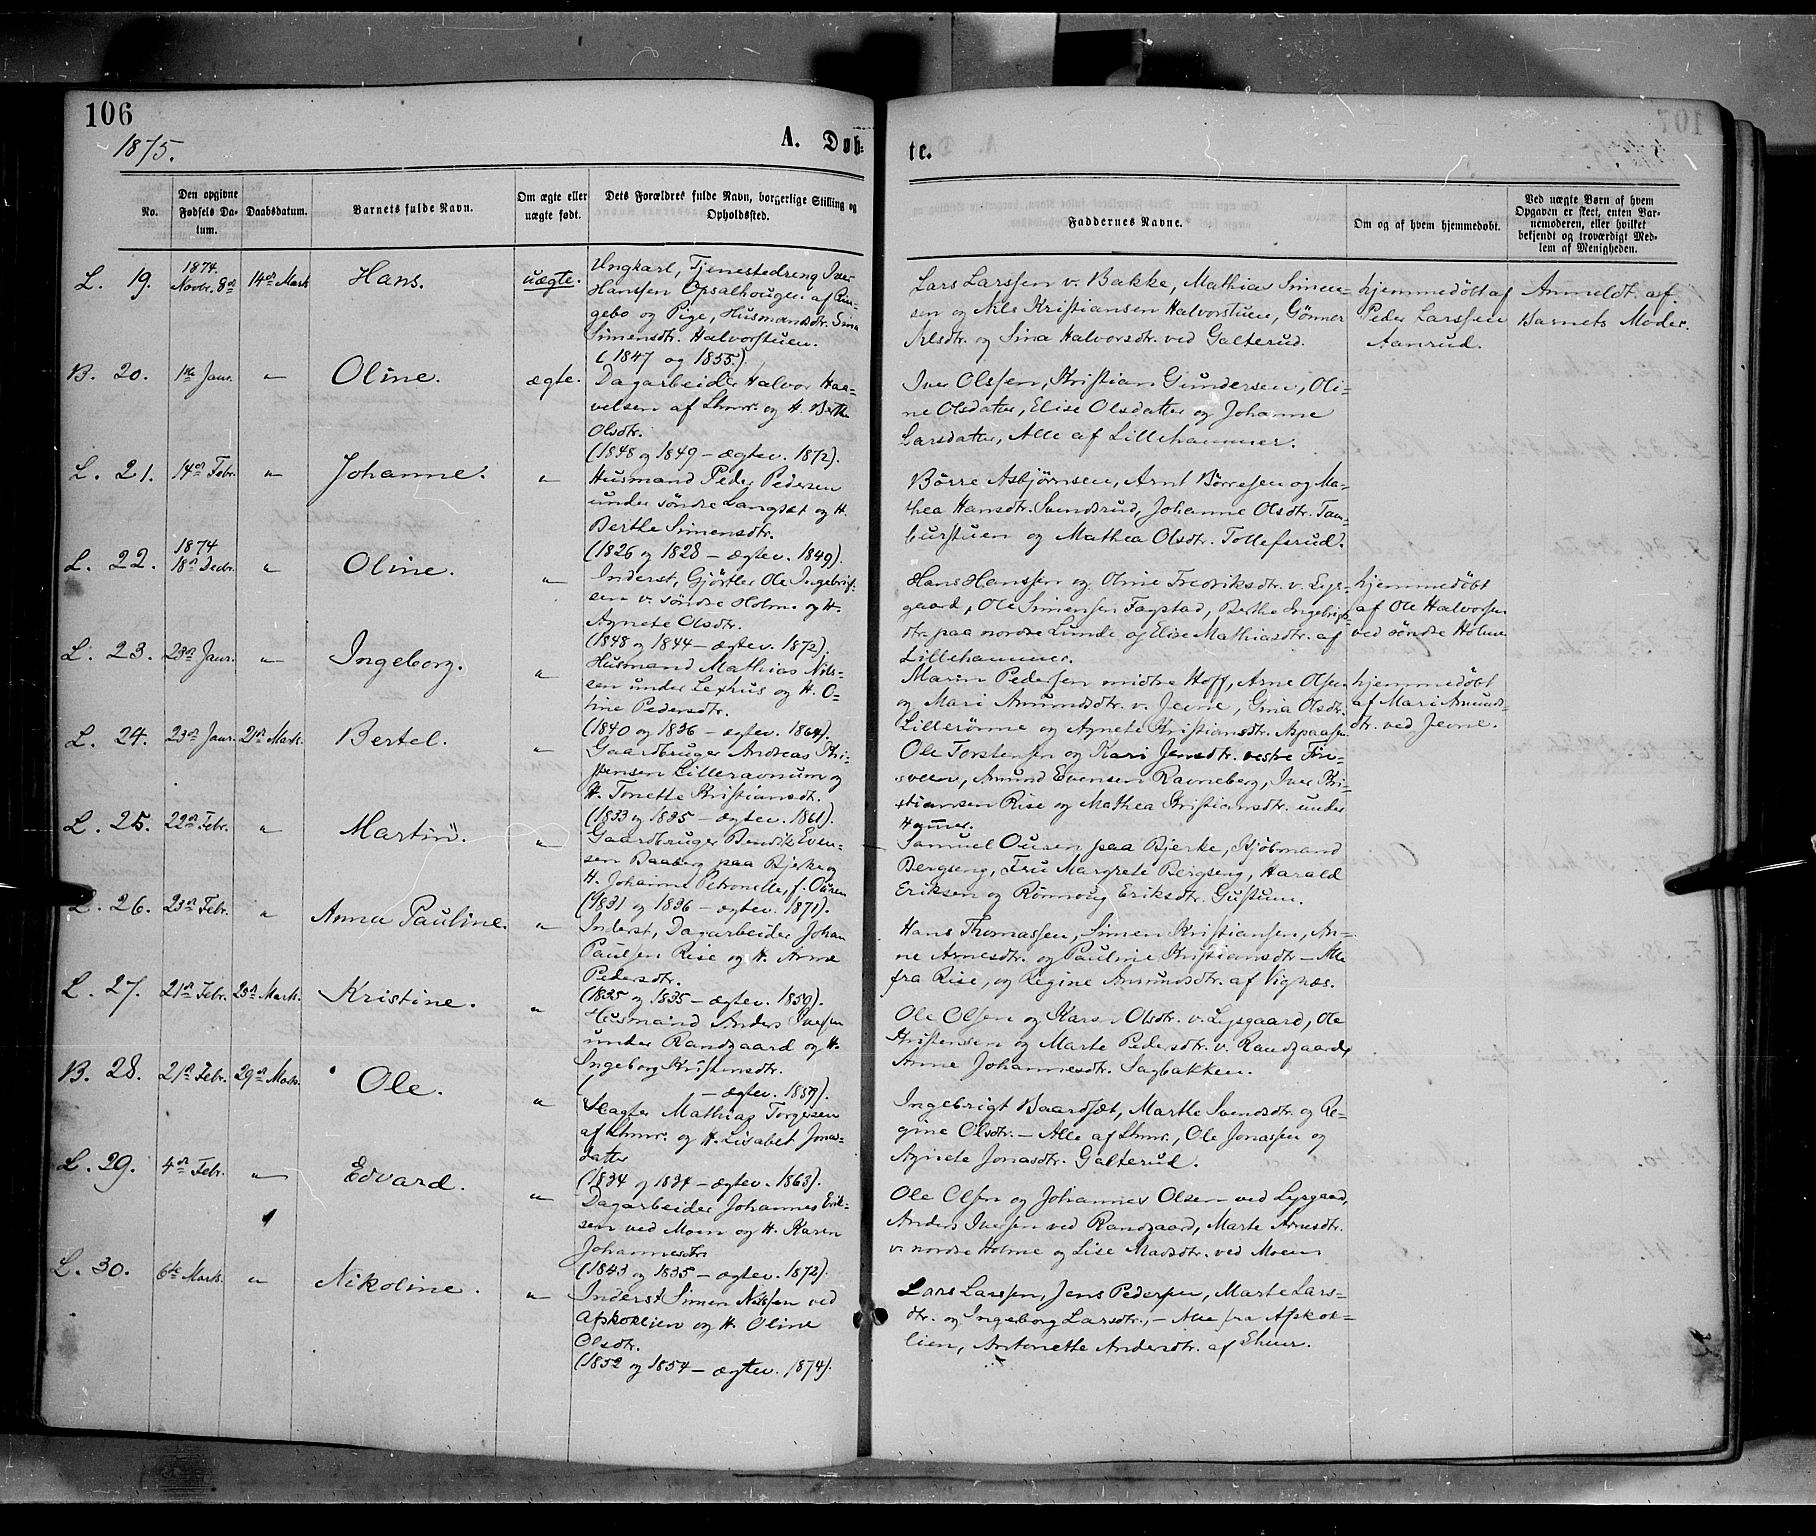 106
1875.
A. Døb-
te.
107
No.
Den opgivne Fødsels Da-
tum.
Daabsdatum.
Barnets fulde Navn.
Om ægte eller
uægte født.
Dets Forældres fulde Navn, borgerlige Stilling og
Opholdssted.
Faddernes Navne.
Om og af hvem hjemmedøbt.
Ved uægte Børn af hvem
Opgaven er skeet, enten Bar-
nemoderen, eller hvilket
bekjendt og troværdigt Med-
lem af Menigheden.
L. 19.
1874.
Novbr. 8de
14de Marts
Hans.
uægte.
Ungkarl, Tjenestedreng Iver
Hanssen Opsalhougen af Rin-
gebo og Pige, Husmandsdtr. Sina
Simensdtr. Halvorstuen.
(1847 og 1855)
Lars Larssen v. Bakke, Mathias Simen-
sen og Nils Kristiansen Halvorstuen, Gønner
Arlsdtr. og Sina Halvorsdtr. ved Galterud.
hjemmedøbt af
Peder Larssen
Aanrud.
Anmeldt af
Barnets Moder.
B. 20.
1ste Janr.
"
Oline.
ægte.
Dagarbeider Halvor Haa-
velsen af Lhmr. og H. Berthe
Olsdtr.
(1848 og 1849 - ægtev. 1872).
Iver Olssen, Kristian Gundersen, Oli-
ne Olsdatter, Elise Olsdatter og Johanne
Larsdatter, Alle af Lillehammer.
L. 21.
14de Febr.
"
Johanne.
"
Husmand Peder Pedersen
under søndre Langset og H.
Berthe Simensdtr.
(1826 og 1828 - ægtev. 1849).
Børre Asbjørnsen, Arnt Børresen og Ma-
thea Hansdtr. Svendsrud, Johanne Olsdtr. Tam-
burstuen og Mathea Olsdtr. Tollefsrud.
L. 22.
1874
18de Decbr.
"
Oline.
"
Inderst, Gjørtler Ole Ingebrigt-
sen v. søndre Holme og H.
Agnete Olsdtr.
(1848 og 1844 - ægtev. 1872).
Hans Hanssen og Oline Fredriksdtr. v. Lys-
gaard, Ole Simensen Fagstad, Berthe Ingebrigts-
dtr. paa nordre Lunde og Elise Mathiasdtr. af
Lillehammer.
hjemmedøbt
af Ole Halvorsen
ved søndre Holme
L. 23.
23de Janr.
"
Ingeborg.
"
Husmand Mathias Nils-
sen under Lexhus og H. O-
line Pedersdtr.
(1840 og 1836 - ægtev. 1864).
Marin Pedersen midtre Hoff, Arne Olsen
og Mari Amundsdtr. v. Jevne, Gina Olsdtr.
Lillerønne og Agnete Kristiansdtr. Aspaasen
hjemmedøbt
af Mari Amunds-
dtr. ved Jevne.
L. 24.
23de Janr.
21de Marts.
Bertel.
"
Gaardbruger Andreas Kri-
stensen Lilleravnum og
H. Tonette Kristiansdtr.
(1833 og 1835 - ægtev. 1861).
Ole Torstensen og Kari Jensdtr. vestre Fin-
sveen, Amund Evensen Ravneberg, Iver Kri-
stiansen Rise og Mathea Kristiansdtr. under
Hammer.
L. 25.
22de Febr.
"
Martin.
"
Gaardbruger Bendik Even-
sen Baaberg paa Bjerke og
H. Johanne Petronelle, f. Ousen
(1831 og 1836 - ægtev. 1871).
Samuel Ousen paa Bjerke, Kjøbmand
Bergseng, Fru Margrete Bergseng, Harald
Eriksen og Rønnoug Eriksdtr. Gustum.
L. 26.
23de Febr.
"
Anna Pauline.
"
Inderst, Dagarbeider Johan
Paulsen Rise og H. Anne
Pedersdtr.
(1835 og 1835 - ægtev. 1859).
Hans Thomassen, Simen Kristiansen, An-
ne Arnesdtr. og Pauline Kristiansdtr - Alle
fra Rise, og Regine Amundsdtr. af Vignæs.
L. 27.
21de Febr.
25de Marts.
Kristine.
"
Husmand Anders Iversen
under Randgaard og H.
Ingeborg Kristensdtr.
( - ægtev. 1859).
Ole Olsen og Kari Olsdtr. v. Lysgaard, Ole
Kristensen og Marte Pedersdtr. v. Randgaard,
Anne Johannesdtr. Sagbakken.
B. 28.
21de Febr.
29de Marts.
Ole.
"
Slagter Mathias Torgersen
af Lhmr. og H. Lisabet Jonas-
datter
(1834 og 1834 - ægtev. 1863).
Ingebrigt Baardsæt, Marthe Svendsdtr. og Re-
gine Olsdtr. - Alle af Lhmr., Ole Jonassen og
Agnete Jonasdtr. Galterud.
L. 29.
4de Febr.
"
Edvard.
"
Dagarbeider Johannes Erik-
sen ved Moen og H. Karen
Johannesdtr.
(1843 og 1835 - ægtev. 1872).
Ole Olsen og Johannes Olsen ved Lysgaard,
Anders Iversen ved Randgaard, Marte Arnesdtr.
v. nordre Holme og Lise Madsdtr. ved Moen
L. 30.
6te Marts.
"
Nikoline.
"
Inderst Simen Nilssen ved
Afskoklien og H. Oline
Olsdtr.
(1852 og 1854 - ægtev. 1874).
Lars Larssen, Jens Pedersen, Marte Lars-
dtr. og Ingeborg Larsdtr, - Alle fra Afskok-
lien, Antonette Andersdtr. af Lhmr.